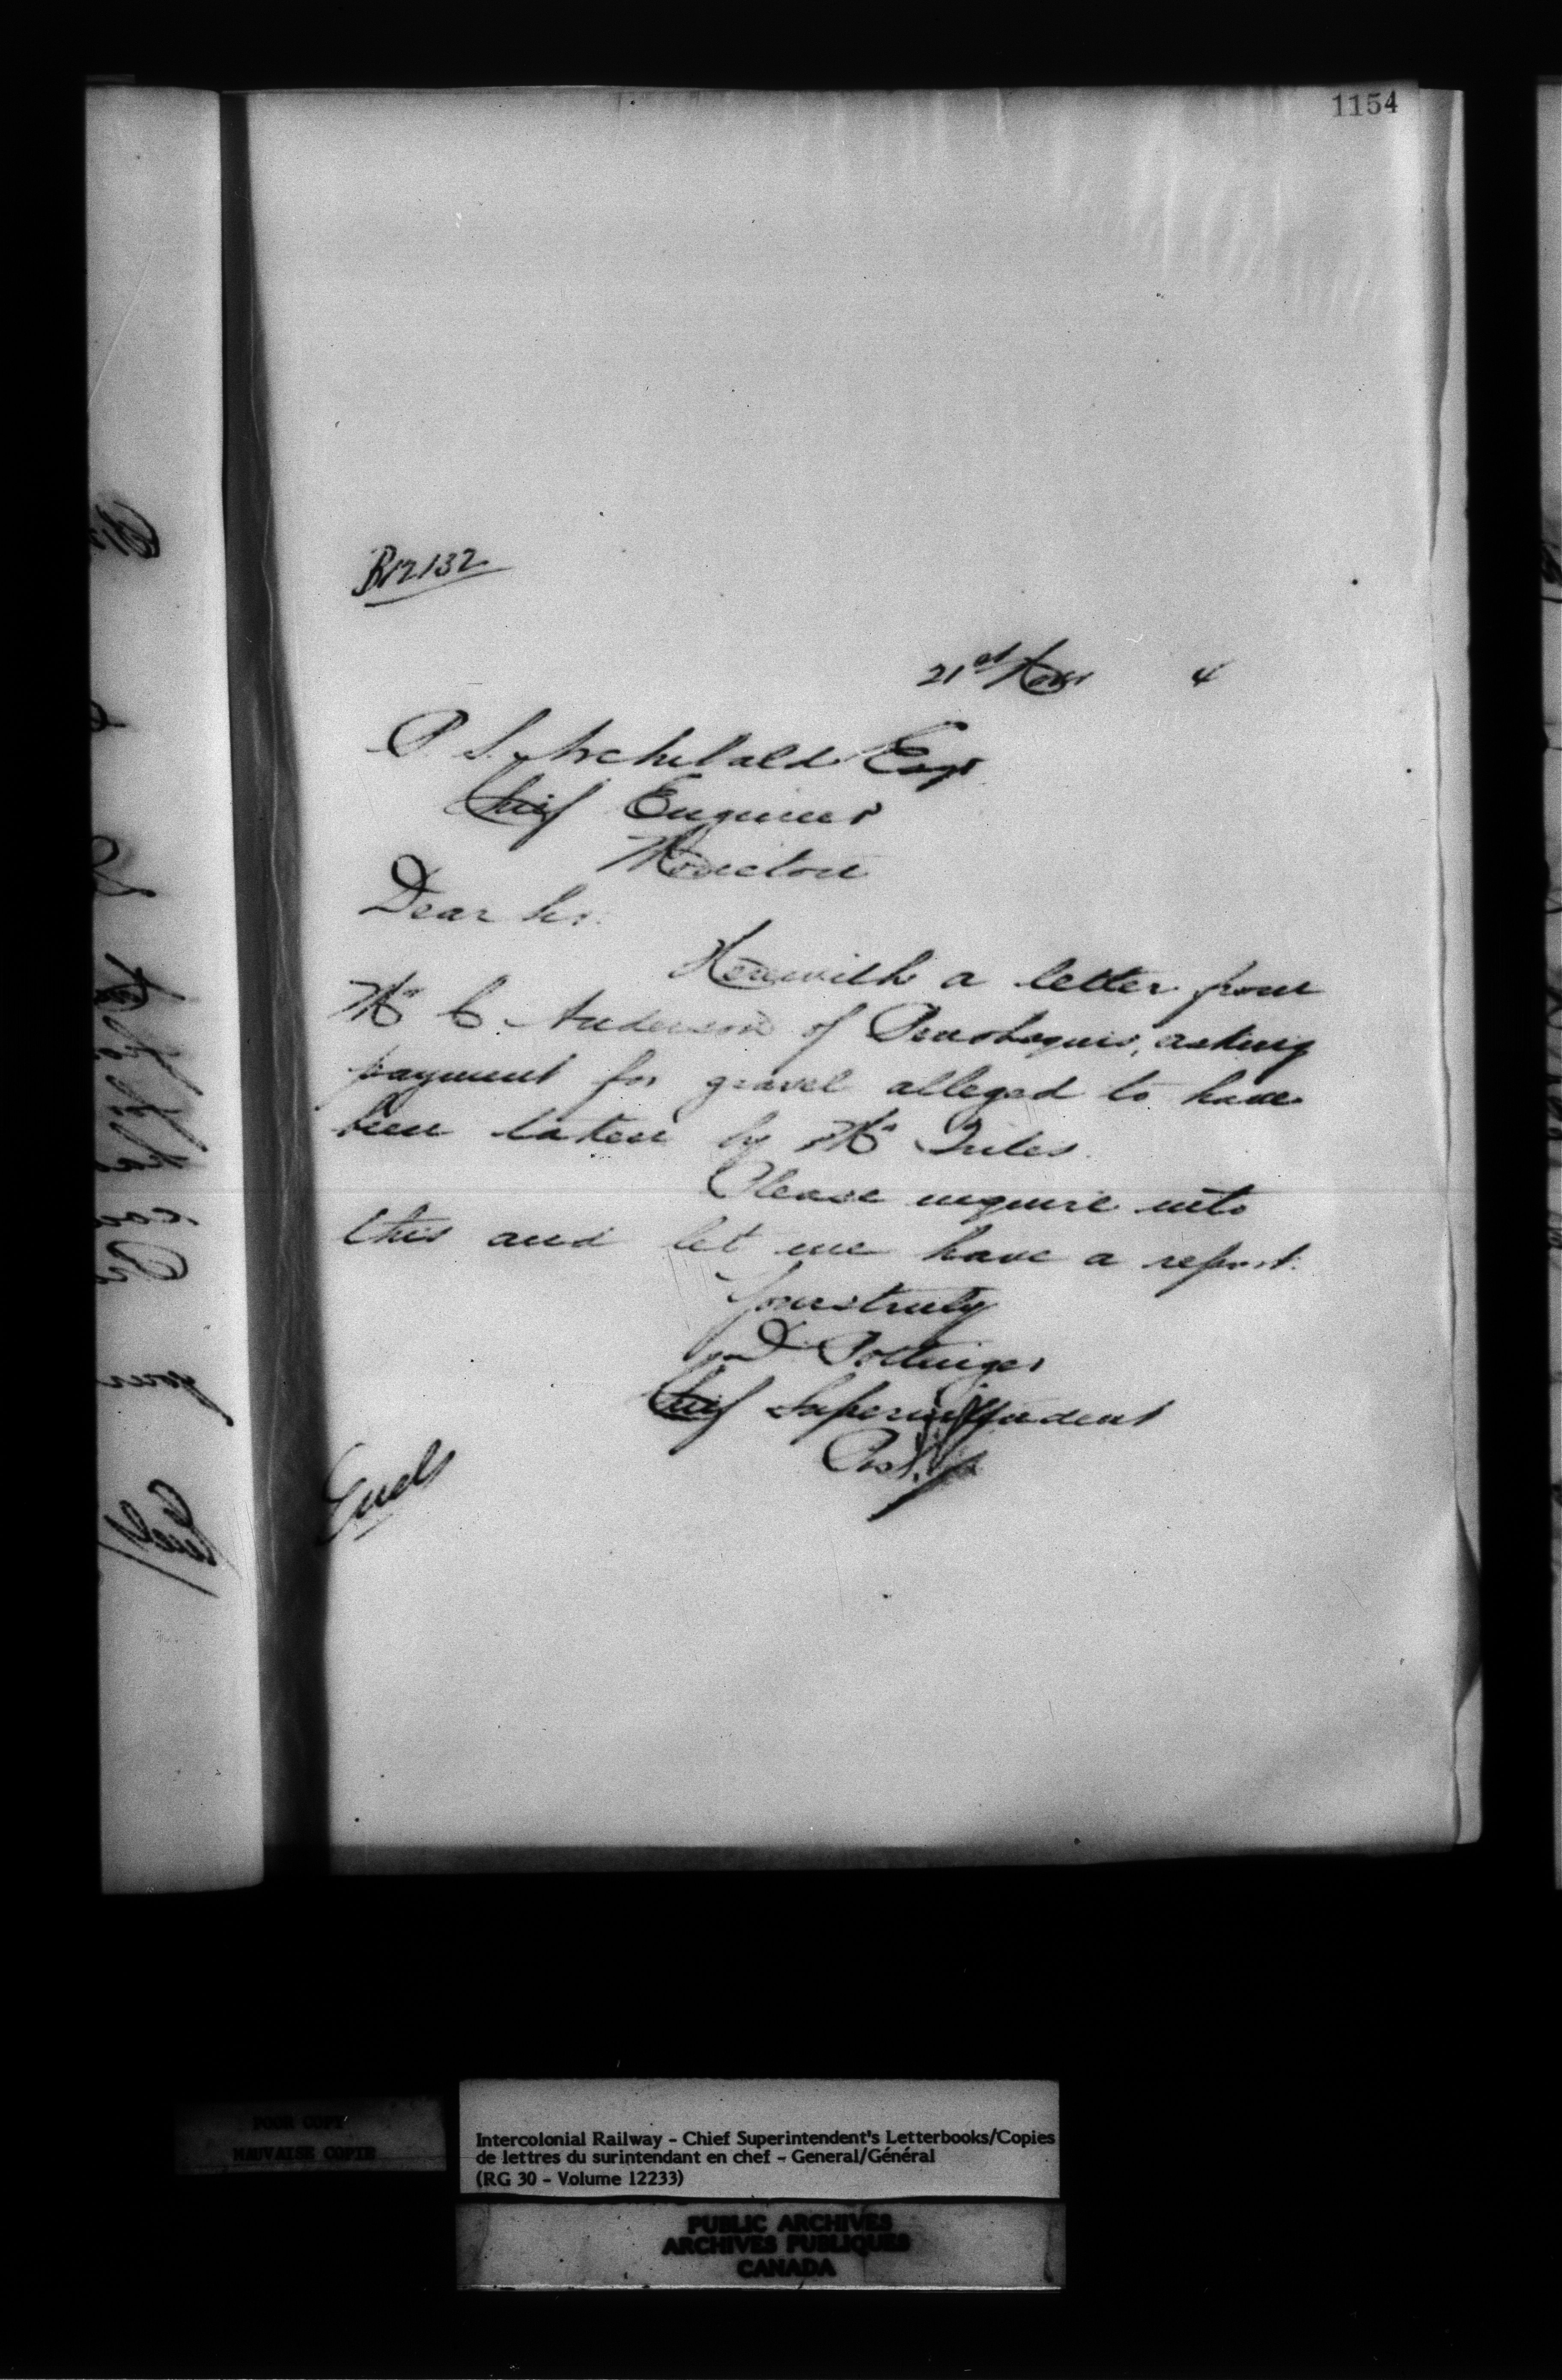 1154
B12132
21st Novr 4
P. S. Archibald Esqr
Chief Engineer
Moncton
Dear Sir:
Herewith a letter from
Mr C. Anderson of Penobsquis, asking
payment for gravel alleged to have
been taken by Mr
Please inquire into
this and let me have a report.
Yours truly
D Pottinger
Chief Superintendent
Encls
POOR COPY
MAUVAISE COPIE
Intercolonial Railway - Chief Superintendent's Letterbooks/Copies
de lettres du surintendant en chef - General/Général
(RG 30 - Volume 12233)
PUBLIC ARCHIVES
ARCHIVES PUBLIQUES
CANADA